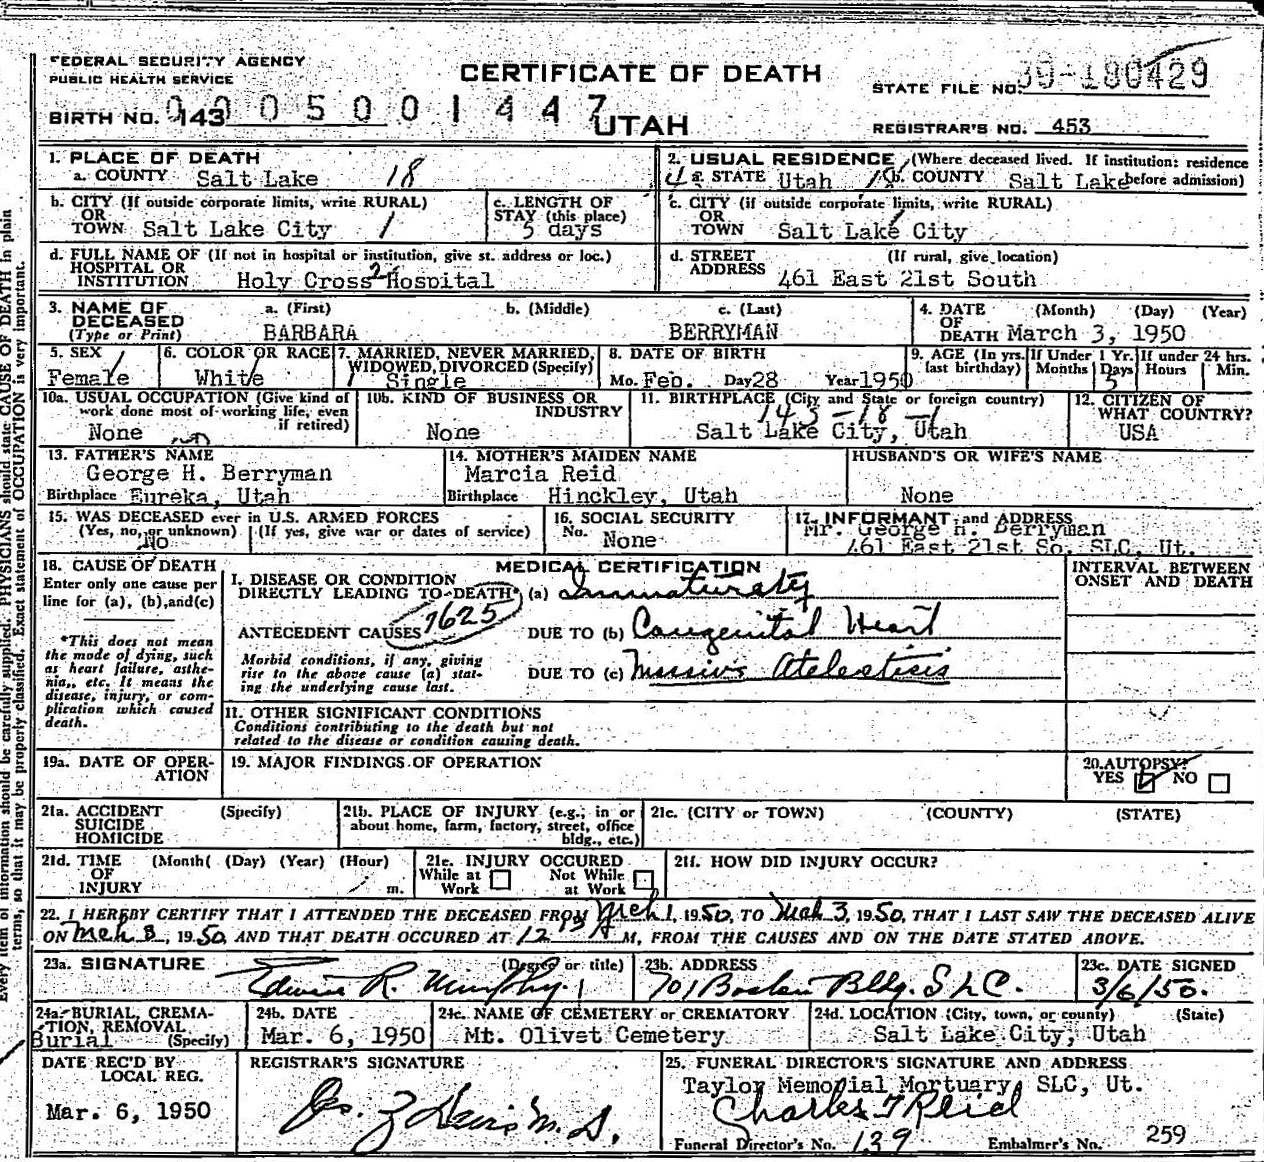 FEDERAL SECURITY AGENCY
PUBLIC HEALTH SERVICE
CERTIFICATE OF DEATH
UTAH
STATE FILE NO. 39-180429
BIRTH NO. 143 0 0 5 0 0 1 4 4 7
REGISTRAR'S NO. 453
1. PLACE OF DEATH
a. COUNTY Salt Lake 18
2. USUAL RESIDENCE (Where deceased lived. If institution: residence before admission)
4 a. STATE Utah 18 b. COUNTY Salt Lake
b. CITY (If outside corporate limits, write RURAL)
OR
TOWN Salt Lake City 1
c. LENGTH OF
STAY (this place)
5 days
c. CITY (if outside corporate limits, write RURAL)
OR
TOWN Salt Lake City
d. FULL NAME OF (If not in hospital or institution, give st. address or loc.)
HOSPITAL OR
INSTITUTION Holy Cross 2 Hospital
d. STREET (If rural, give location)
ADDRESS 461 East 21st South
3. NAME OF
DECEASED
(Type or Print)
a. (First) b. (Middle) c. (Last)
BARBARA BERRYMAN
4. DATE (Month) (Day) (Year)
OF
DEATH March 3, 1950
5. SEX
Female
6. COLOR OR RACE
White
7. MARRIED, NEVER MARRIED,
WIDOWED, DIVORCED (Specify)
Single
8. DATE OF BIRTH
Mo. Feb. Day 28 Year 1950
9. AGE (In yrs. last birthday)
If Under 1 Yr.
Months Days
5
If under 24 hrs.
Hours Min.
10a. USUAL OCCUPATION (Give kind of
work done most of working life, even
if retired)
None
10b. KIND OF BUSINESS OR
INDUSTRY
None
11. BIRTHPLACE (City and State or foreign country)
143-18-1
Salt Lake City, Utah
12. CITIZEN OF
WHAT COUNTRY?
USA
13. FATHER'S NAME
George H. Berryman
Birthplace Eureka, Utah
14. MOTHER'S MAIDEN NAME
Marcia Reid
Birthplace Hinckley, Utah
HUSBAND'S OR WIFE'S NAME
None
15. WAS DECEASED ever in U.S. ARMED FORCES
(Yes, no, or unknown) (If yes, give war or dates of service)
No
16. SOCIAL SECURITY
No. None
17. INFORMANT and ADDRESS
Mr. George H. Berryman
461 East 21st So. SLC, Ut.
18. CAUSE OF DEATH
Enter only one cause per
line for (a), (b), and (c)
*This does not mean
the mode of dying, such
as heart failure, asthe-
nia, etc. It means the
disease, injury, or com-
plication which caused
death.
MEDICAL CERTIFICATION
I. DISEASE OR CONDITION
DIRECTLY LEADING TO DEATH* (a) Immaturaty
7625
ANTECEDENT CAUSES DUE TO (b) Congenital Heart
Morbid conditions, if any, giving
rise to the above cause (a) stat-
ing the underlying cause last.
DUE TO (c) Massive Atelectisis
INTERVAL BETWEEN
ONSET AND DEATH
II. OTHER SIGNIFICANT CONDITIONS
Conditions contributing to the death but not
related to the disease or condition causing death.
19a. DATE OF OPER-
ATION
19. MAJOR FINDINGS OF OPERATION
20. AUTOPSY?
YES NO
21a. ACCIDENT (Specify)
SUICIDE
HOMICIDE
21b. PLACE OF INJURY (e.g., in or
about home, farm, factory, street, office
bldg., etc.)
21c. (CITY or TOWN) (COUNTY) (STATE)
21d. TIME (Month( (Day) (Year) (Hour)
OF
INJURY m.
21e. INJURY OCCURED
While at Work Not While at Work
21f. HOW DID INJURY OCCUR?
22. I HEREBY CERTIFY THAT I ATTENDED THE DECEASED FROM Mch 1, 1950, TO Mch 3, 1950, THAT I LAST SAW THE DECEASED ALIVE
ON Mch 3, 1950, AND THAT DEATH OCCURED AT 12 15 A M, FROM THE CAUSES AND ON THE DATE STATED ABOVE.
23a. SIGNATURE (Degree or title)
Edwin R. Murphy
23b. ADDRESS
701 Boston Bldg. SLC.
23c. DATE SIGNED
3/6/50.
24a. BURIAL, CREMA-
TION, REMOVAL
Burial (Specify)
24b. DATE
Mar. 6, 1950
24c. NAME OF CEMETERY or CREMATORY
Mt. Olivet Cemetery
24d. LOCATION (City, town, or county) (State)
Salt Lake City, Utah
DATE REC'D BY
LOCAL REG.
Mar. 6, 1950
REGISTRAR'S SIGNATURE
M.D.
25. FUNERAL DIRECTOR'S SIGNATURE AND ADDRESS
Taylor Memorial Mortuary, SLC, Ut.
Charles T Reid
Funeral Director's No. 139 Embalmer's No. 259
Every item of information should be carefully supplied. PHYSICIANS should state CAUSE OF DEATH in plain
terms, so that it may be properly classified. Exact statement of OCCUPATION is very important.